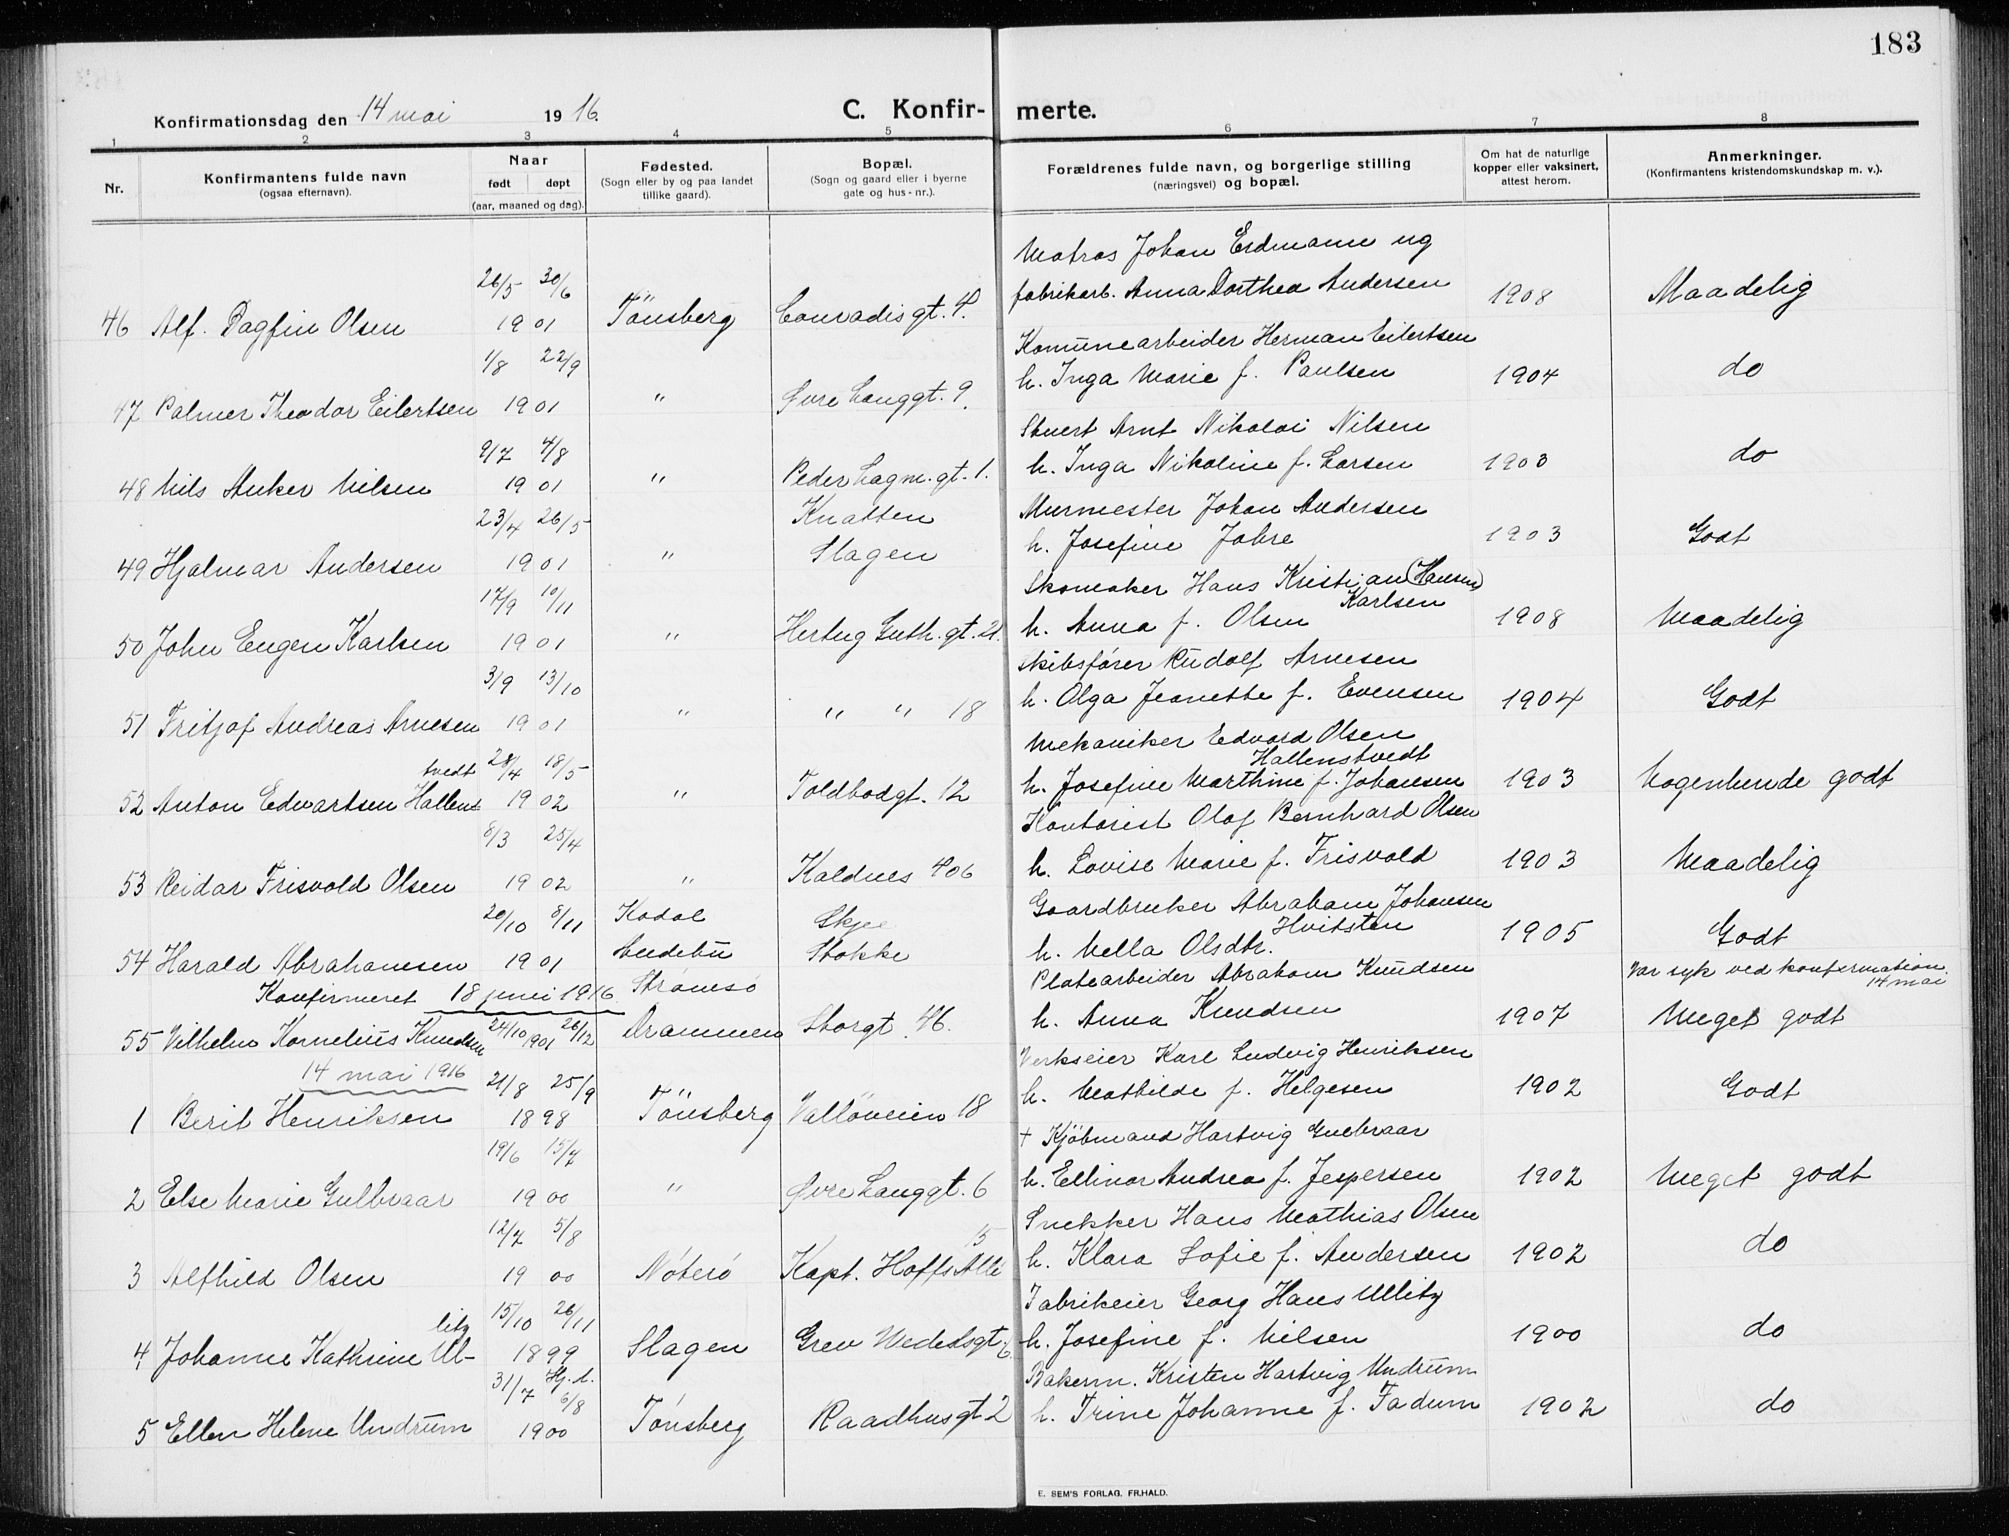 183
Konfirmationsdag den 14 mai 1916. C. Konfir- merte.
1 2 3 4 5 6 7 8
Nr. Konfirmantens fulde navn (ogsaa efternavn). Naar født døpt (aar, maaned og dag). Fødested. (Sogn eller by og paa landet tillike gaard). Bopæl. (Sogn og gaard eller i byerne gate og hus-nr.). Forældrenes fulde navn, og borgerlige stilling (næringsvei) og bopæl. Om hat de naturlige kopper eller vaksinert, attest herom. Anmerkninger. (Konfirmantens kristendomskundskap m. v.).
Matros Johan Erdmann og
26/5 30/6 fabrikarb. Anna Dorthea Andersen
46 Alf. Dagfin Olsen 1901 Tönsberg Conradisgt. 4. 1908 Maadelig
1/8 22/9 Komunearbeider Herman Eilertsen
47 Palmer Theodor Eilertsen 1901 " Øvre Langgt. 9. h. Inga Marie f. Paulsen 1904 do
9/7 4/8 Stuert Arnt Nikolai Nilsen
48 Nils Anker Nilsen 1901 " Peder Lagm. gt. 1. h. Inga Nikoline f. Larsen 1903 do
23/4 26/5 Knatten Murmester Johan Andersen
49 Hjalmar Andersen 1901 " Slagen h. Josefine Johre 1903 Godt
17/9 10/11 Skomaker Hans Kristian (Hansen) Karlsen
50 John Eugen Karlsen 1901 " Hertug Guth. gt. 21. h. Anna f. Olsen 1908 Maadelig
3/9 13/10 Skibsfører Rudolf Arnesen
51 Fritjof Andreas Arnesen 1901 " " " 18 h. Olga Jeanette f. Evensen 1904 Godt
tvedt 28/4 18/5 Mekaniker Edvard Olsen Hallenstvedt
52 Anton Edvartsen Hallens 1902 " Toldbodgt. 12 h. Josefine Marthine f. Johansen 1903 Nogenlunde godt
8/3 25/4 Kontorist Olaf Bernhard Olsen
53 Reidar Frisvold Olsen 1902 " Kaldnes 406 h. Lovise Marie f. Frisvold 1903 Maadelig
20/10 8/11 Kodal Skjee Gaardbruker Abraham Johansen Hvitsten
54 Harald Abrahamsen 1901 Andebu Stokke h. Nella Olsdtr. 1905 Godt
Konfirmeret 18 juni 1916 Strømsø Platearbeider Abraham Knudsen Var syk ved konfirmation 14 mai
55 Vilhelm Kornelius Knudsen 24/10 1901 26/12 Drammen Storgt. 46. h. Anna Knudsen 1907 Meget godt
14 mai 1916 21/8 25/9 Verkseier Karl Ludvig Henriksen
1 Berit Henriksen 1898 Tönsberg Vallöveien 18 h. Mathilde f. Helgesen 1902 Godt
19/6 15/7 + Kjøbmand Hartvig Gulbraar
2 Else Marie Gulbraar 1900 " Øvre Langgt. 6 h. Ellinor Andrea f. Jespersen 1902 Meget godt
12/7 5/8 15 Snekker Hans Mathias Olsen
3 Alfhild Olsen 1900 Nøterø Kapt. Hoffs Allé h. Klara Sofie f. Andersen 1902 do
litz 15/10 26/11 Fabrikeier Georg Hans Ullitz
4 Johanne Kathrine Ul- 1899 Slagen Grev Wedelsgt. 6. h. Josefine f. Nilsen 1900 do
31/7 Hj. d. 6/8 Bakerm. Kristen Hartvig Undrum
5 Ellen Helene Undrum 1900 Tönsberg Raadhusgt 2 h. Trine Johanne f. Fadum 1902 do
E. SEM'S FORLAG. FR.HALD.